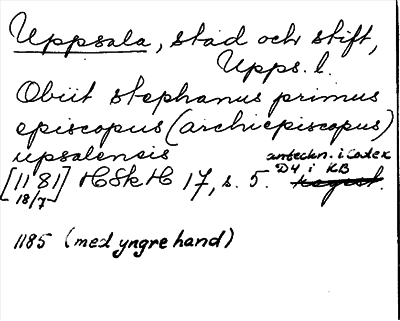 Uppsala, stad och stift,
Upps. l.
Obiit stephanus primus
episcopus (archiepiscopus)
upsalensis
anteckn. i Codex
D4, i KB
[1181] HSkH 17, s. 5.
18/7
1185 (med yngre hand)